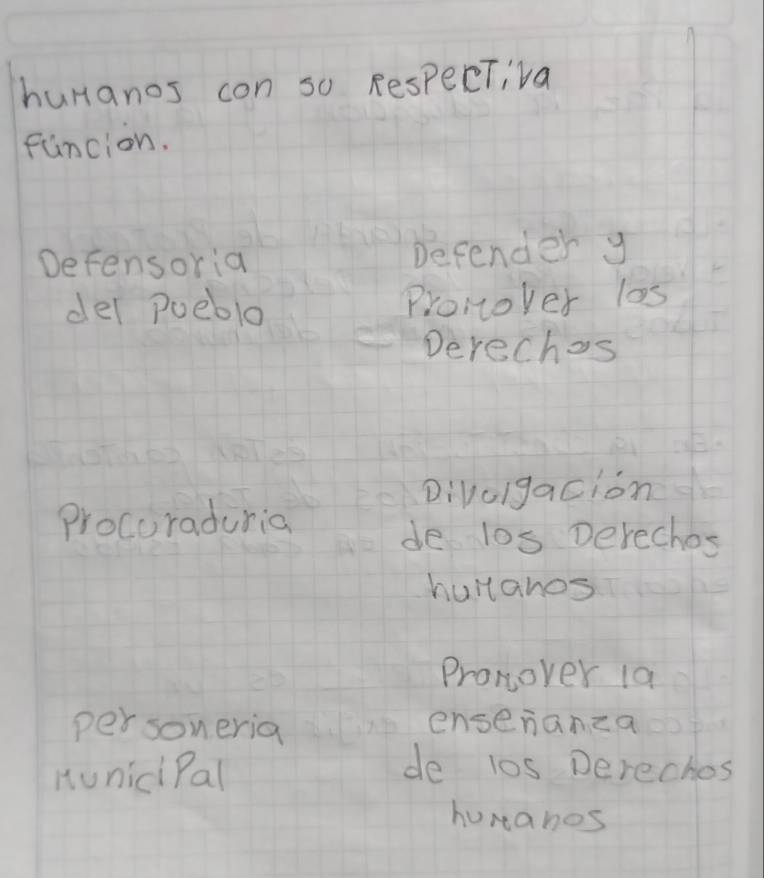 humanos con su Respectiva
función.
Defensoria
del Pueblo
Defender y
Promover los
Derechos
Procuraduria
Divulgación
de los Derechos
humanos
personeria
Municipal
Promover la
enseñanza
de los Derechos
humanos